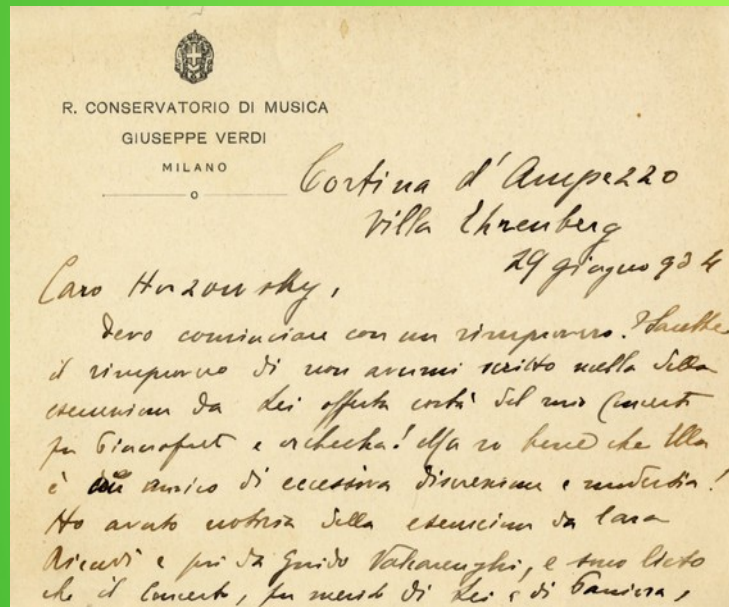 R. CONSERVATORIO DI MUSICA
GIUSEPPE VERDI
MILANO
Cortina d'Ampezzo
Villa Ehrenberg
29 giugno 934
Caro Horzowsky,
Devo cominciare con un rimprovero.
il rimprovero di non avermi scritto nulla della
esecuzione da Lei offerta costà del mio Concerto
per Pianoforte e orchestra! Ma so bene che Ella
è un amico di eccessiva discrezione e modestia!
Ho avuto notizia della esecuzione da Casa
Ricordi e poi da Guido Valcarenghi, e sono lieto
che il Concerto, per merito di Lei e di